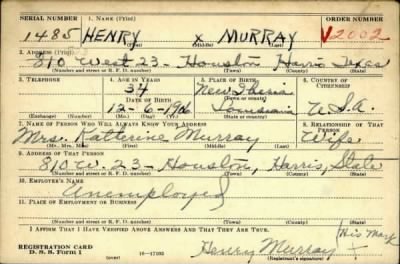 SERIAL NUMBER 1. NAME (Print) ORDER NUMBER
1485 HENRY X MURRAY V2002
(First) (Middle) (Last)
2. ADDRESS (Print)
810 West 23 - Houston Harris Texas
(Number and street or R. F. D. number) (Town) (County) (State)
3. TELEPHONE 4. AGE IN YEARS 5. PLACE OF BIRTH 6. COUNTRY OF CITIZENSHIP
34 New Iberia
(Town or county)
DATE OF BIRTH
12-6-1906 Louisiana U.S.A.
(Exchange) (Number) (Mo.) (Day) (Yr.) (State or country)
7. NAME OF PERSON WHO WILL ALWAYS KNOW YOUR ADDRESS 8. RELATIONSHIP OF THAT PERSON
Mrs. Katherine Murray Wife
(Mr., Mrs., Miss) (First) (Middle) (Last)
9. ADDRESS OF THAT PERSON
810 W. 23 - Houston, Harris, State
(Number and street or R. F. D. number) (Town) (County) (State)
10. EMPLOYER'S NAME
Unemployed
11. PLACE OF EMPLOYMENT OR BUSINESS
(Number and street or R. F. D. number) (Town) (County) (State)
I AFFIRM THAT I HAVE VERIFIED ABOVE ANSWERS AND THAT THEY ARE TRUE.
His Mark
REGISTRATION CARD Henry Murray X
D. S. S. Form 1 (over) 16-17105 (Registrant's signature)